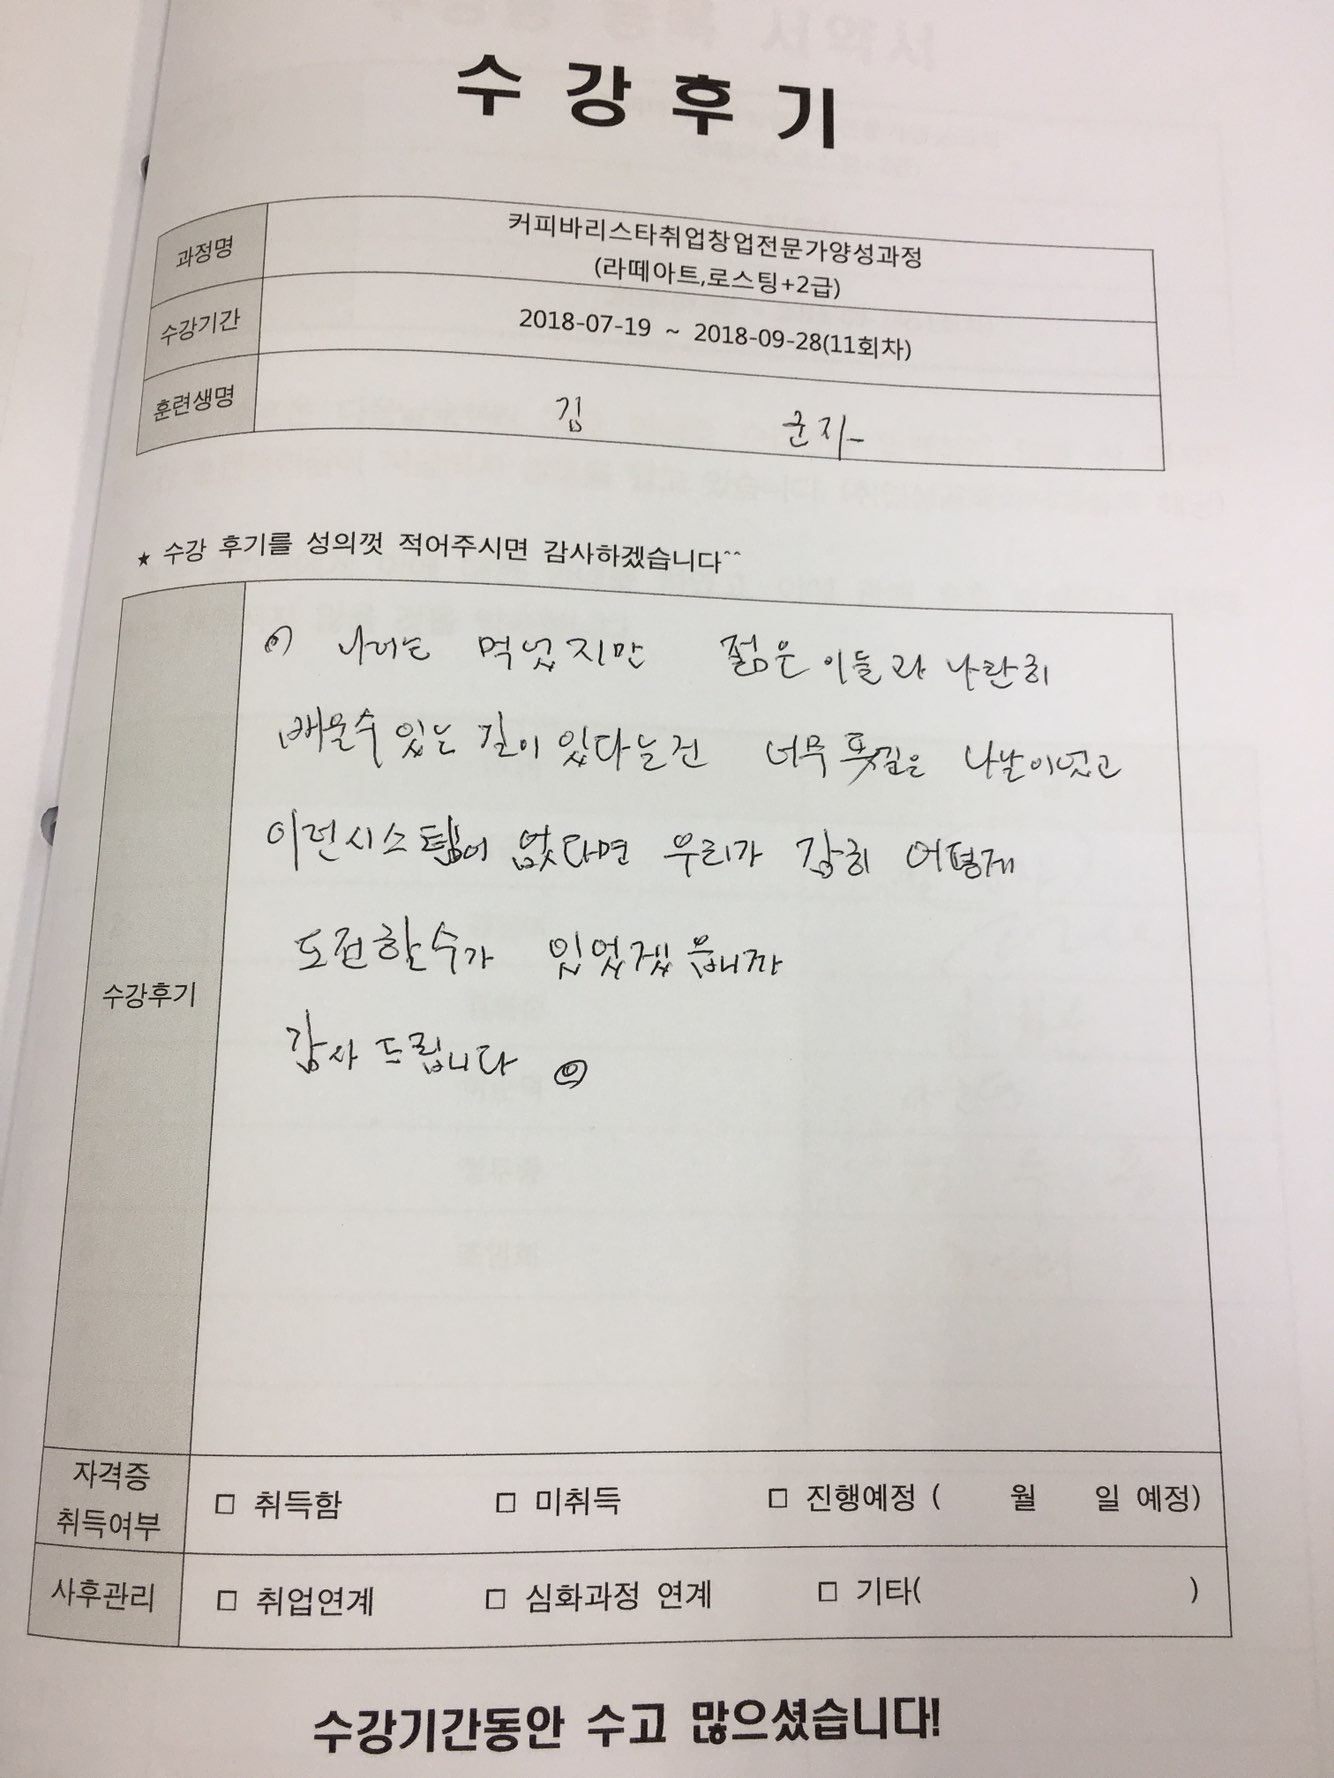 수강후기
과정명
커피바리스타취업창업전문가양성과정
(라떼아트,로스팅+2급)
수강기간
2018-07-19 ~ 2018-09-28(11회차)
훈련생명
김 군자
★ 수강 후기를 성의껏 적어주시면 감사하겠습니다^^
수강후기
나이는 먹었지만 젊은이들과 나란히
배울수 있는 길이 있다는건 너무 나날이었고
이런시스템이 없다면 우리가 감히 어떻게
도전할수가 있었겠읍니까
감사 드립니다
자격증
취득여부
□ 취득함 □ 미취득 □ 진행예정 ( 월 일 예정)
사후관리
□ 취업연계 □ 심화과정 연계 □ 기타( )
수강기간동안 수고 많으셨습니다!